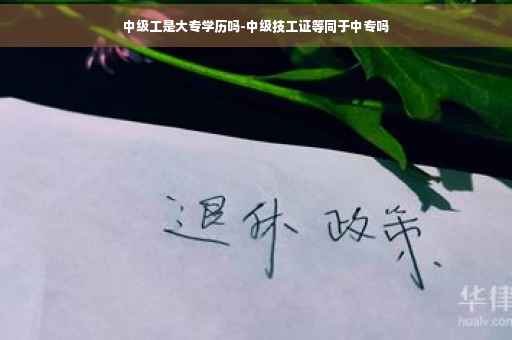 中级工是大专学历吗-中级技工证等同于中专吗
退休 政策
华律
hualv.com